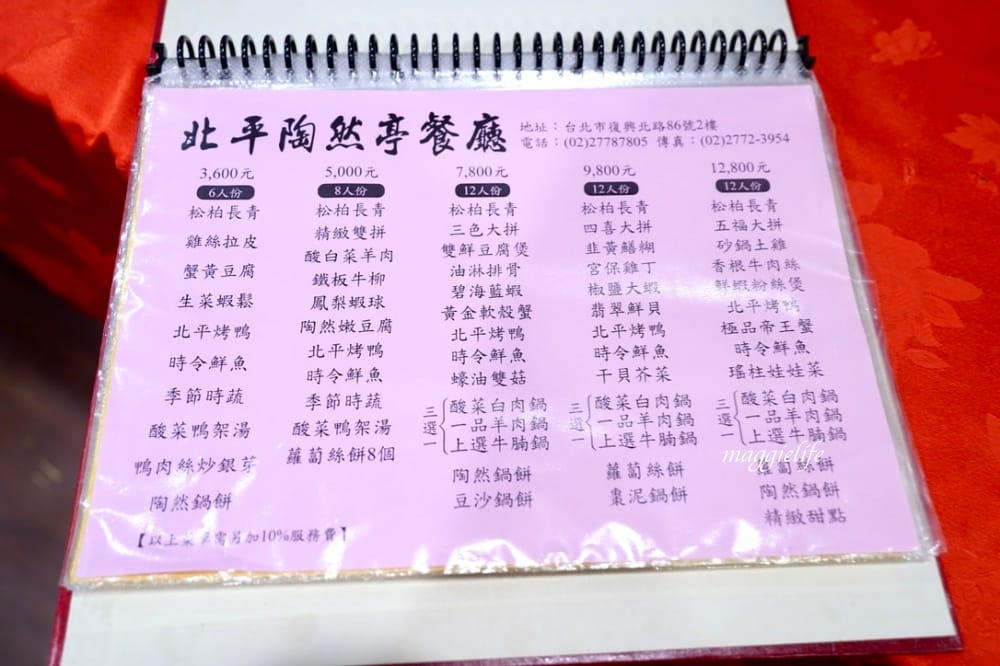 北平陶然亭餐廳
地址：台北市復興北路86號2樓
電話：(02)27787805 傳真：(02)2772-3954
3,600元
6人份
松柏長青
雞絲拉皮
蟹黃豆腐
生菜蝦鬆
北平烤鴨
時令鮮魚
季節時蔬
酸菜鴨架湯
鴨肉絲炒銀芽
陶然鍋餅
5,000元
8人份
松柏長青
精緻雙拼
酸白菜羊肉
鐵板牛柳
鳳梨蝦球
陶然嫩豆腐
北平烤鴨
時令鮮魚
季節時蔬
酸菜鴨架湯
蘿蔔絲餅8個
7,800元
12人份
松柏長青
三色大拼
雙鮮豆腐煲
油淋排骨
碧海藍蝦
黃金軟殼蟹
北平烤鴨
時令鮮魚
蠔油雙菇
三選一
酸菜白肉鍋
一品羊肉鍋
上選牛腩鍋
陶然鍋餅
豆沙鍋餅
9,800元
12人份
松柏長青
四喜大拼
韭黃鱔糊
宮保雞丁
椒鹽大蝦
翡翠鮮貝
北平烤鴨
時令鮮魚
干貝芥菜
三選一
酸菜白肉鍋
一品羊肉鍋
上選牛腩鍋
蘿蔔絲餅
棗泥鍋餅
12,800元
12人份
松柏長青
五福大拼
砂鍋土雞
香根牛肉絲
鮮蝦粉絲煲
北平烤鴨
極品帝王蟹
時令鮮魚
瑤柱娃娃菜
三選一
酸菜白肉鍋
一品羊肉鍋
上選牛腩鍋
蘿蔔絲餅
陶然鍋餅
精緻甜點
【以上菜單需另加10%服務費】
maggielife